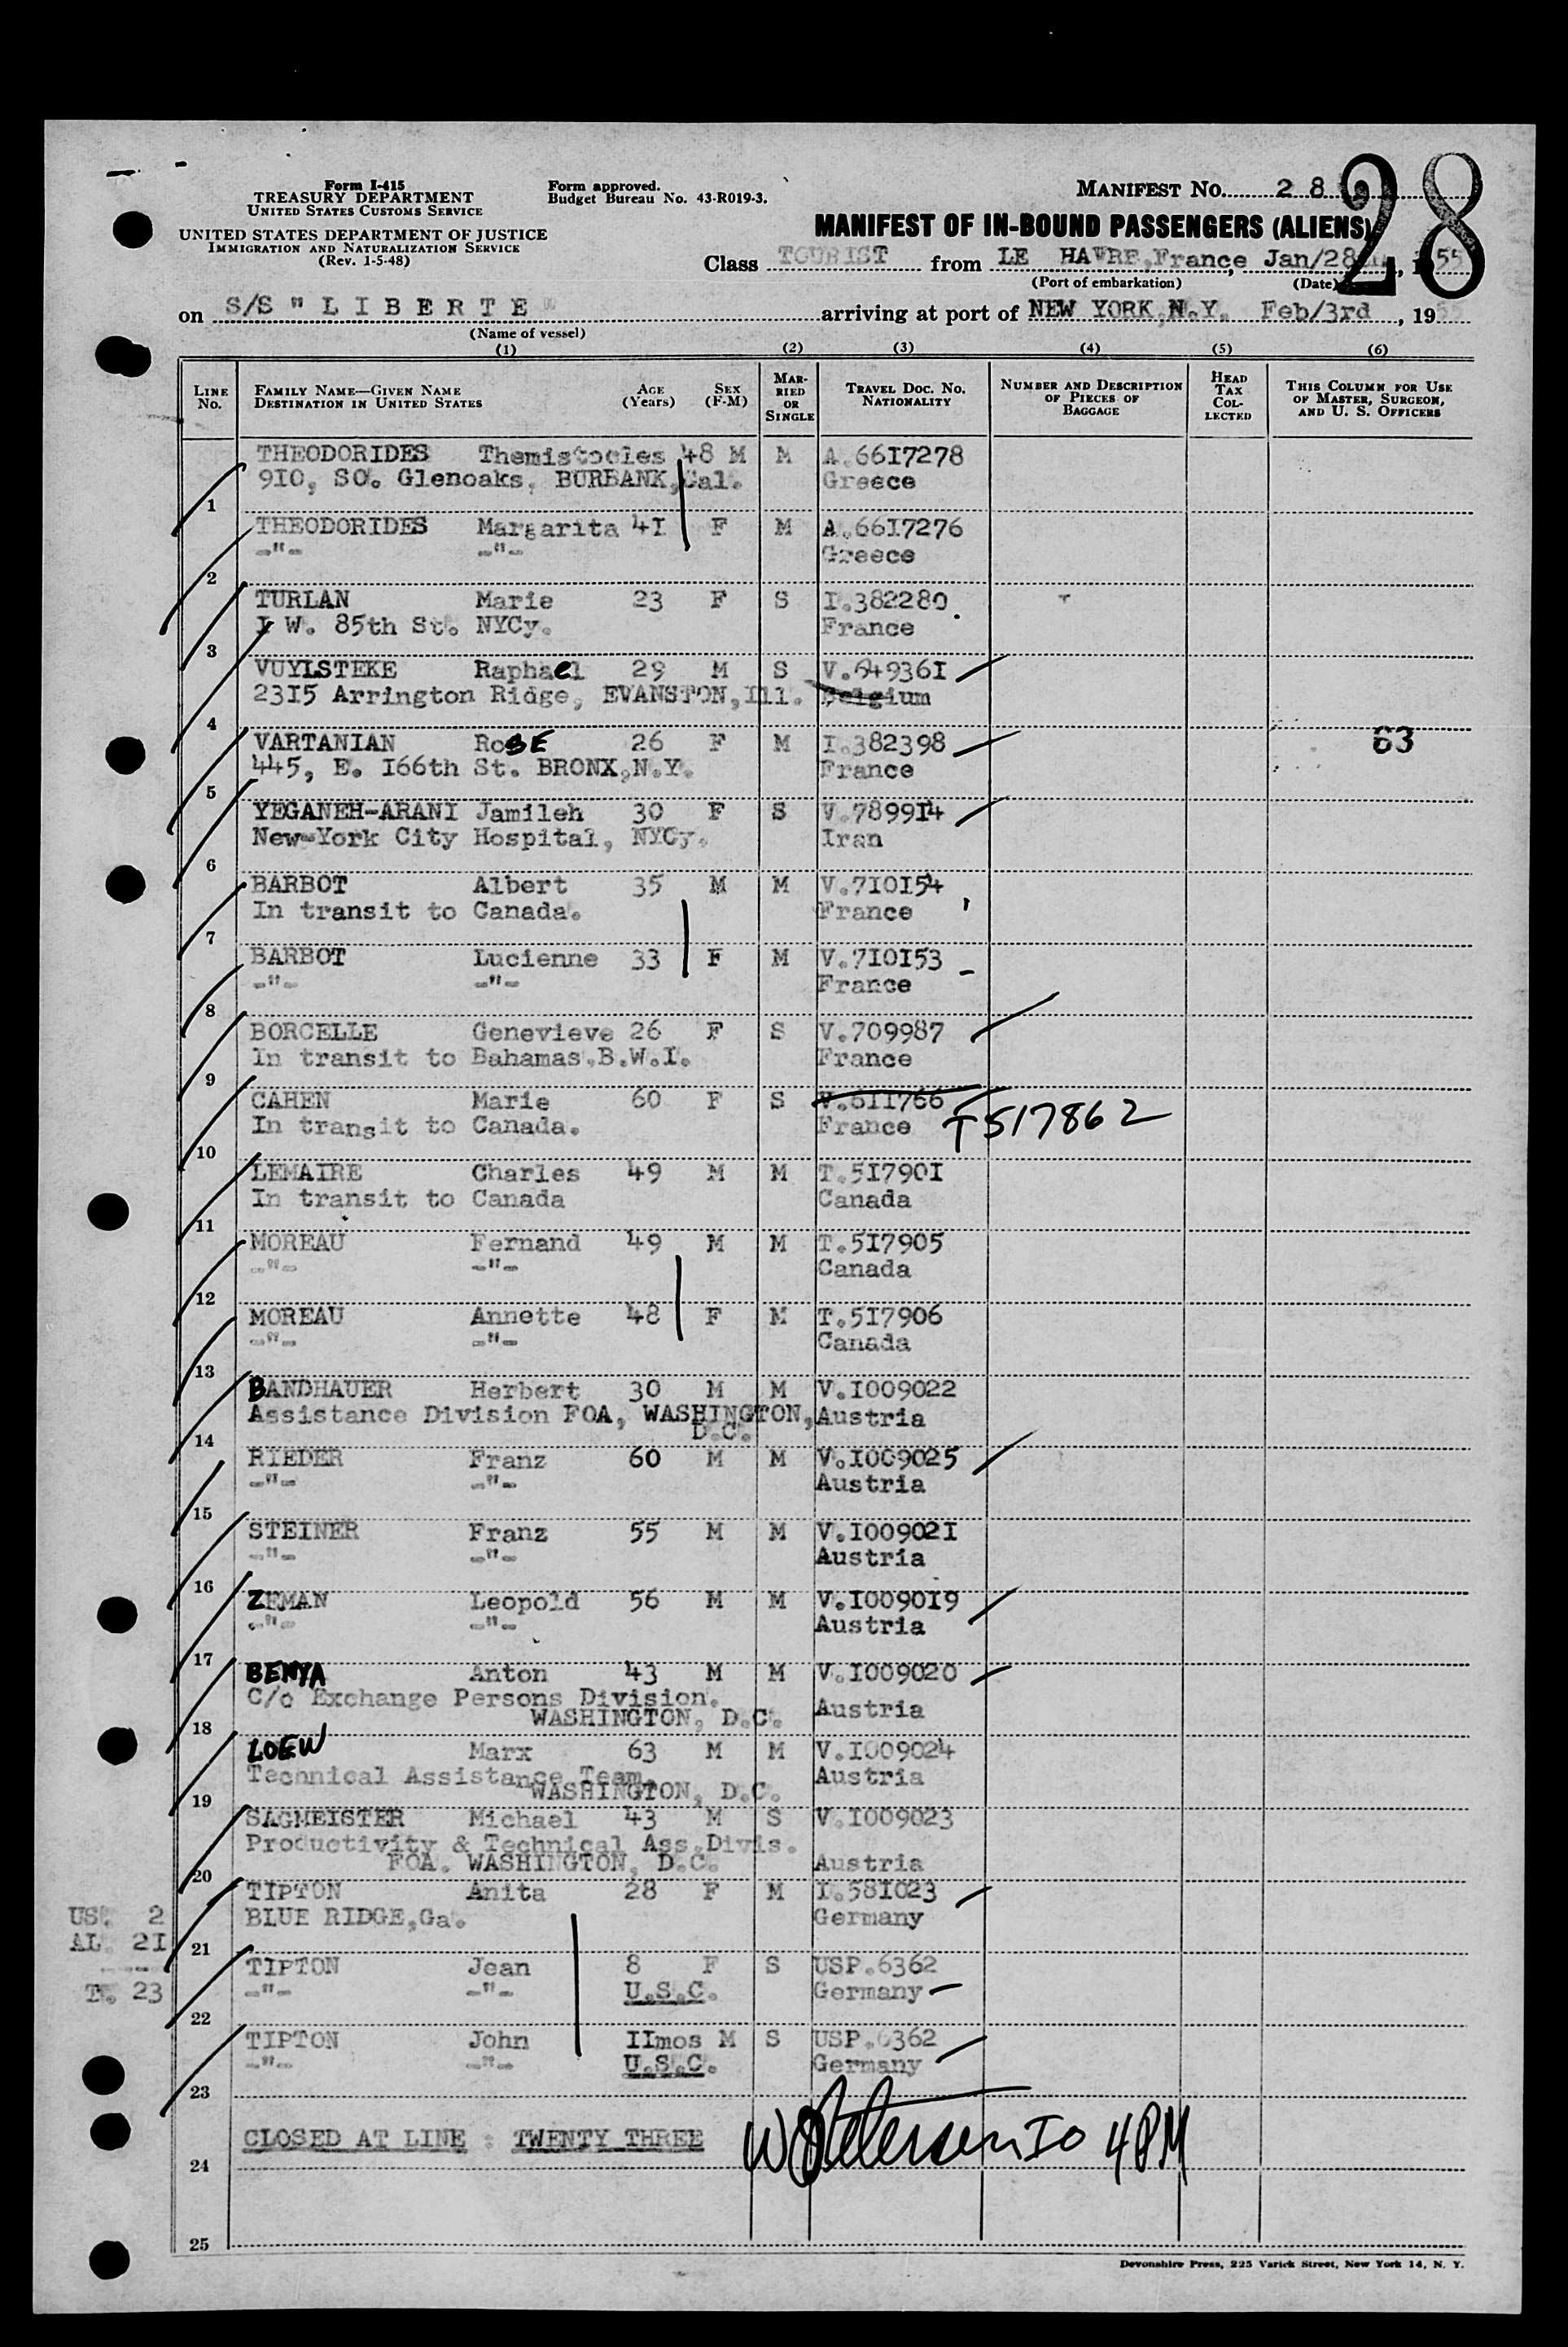 Form I-415
TREASURY DEPARTMENT
UNITED STATES CUSTOMS SERVICE
UNITED STATES DEPARTMENT OF JUSTICE
IMMIGRATION AND NATURALIZATION SERVICE
(Rev. 1-5-48)
Form approved.
Budget Bureau No. 43-R019-3.
MANIFEST NO. 28
28
MANIFEST OF IN-BOUND PASSENGERS (ALIENS)
Class TOURIST from LE HAVRE,France, Jan/28, 1955
(Port of embarkation) (Date)
on S/S " L I B E R T E " arriving at port of NEW YORK,N.Y. Feb/3rd, 19
(Name of vessel)
(1) (2) (3) (4) (5) (6)
LINE No. FAMILY NAME—GIVEN NAME DESTINATION IN UNITED STATES AGE (Years) SEX (F-M) MARRIED OR SINGLE TRAVEL DOC. NO. NATIONALITY NUMBER AND DESCRIPTION OF PIECES OF BAGGAGE HEAD TAX COLLECTED THIS COLUMN FOR USE OF MASTER, SURGEON, AND U. S. OFFICERS
THEODORIDES Themistocles 48 M M A.66I7278
9I0, SO. Glenoaks, BURBANK,Cal. Greece
1
THEODORIDES Margarita 4I F M A.66I7276
-"- -"- Greece
2
TURLAN Marie 23 F S I.382280
I W. 85th St. NYCy. France
3
VUYLSTEKE Raphael 29 M S V.64936I
23I5 Arrington Ridge, EVANSTON,Ill. Belgium
4
VARTANIAN RoSE 26 F M I.382398 63
445, E. I66th St. BRONX,N.Y. France
5
YEGANEH-ARANI Jamileh 30 F S V.7899I4
New-York City Hospital, NYCy. Iran
6
BARBOT Albert 35 M M V.7I0I54
In transit to Canada. France
7
BARBOT Lucienne 33 F M V.7I0I53
-"- -"- France
8
BORCELLE Genevieve 26 F S V.709987
In transit to Bahamas.B.W.I. France
9
CAHEN Marie 60 F S V.6II766
In transit to Canada. France T517862
10
LEMAIRE Charles 49 M M T.5I790I
In transit to Canada Canada
11
MOREAU Fernand 49 M M T.5I7905
-"- -"- Canada
12
MOREAU Annette 48 F M T.5I7906
-"- -"- Canada
13
BANDHAUER Herbert 30 M M V.I009022
Assistance Division FOA, WASHINGTON, Austria
D.C.
14
RIEDER Franz 60 M M V.I009025
-"- -"- Austria
15
STEINER Franz 55 M M V.I00902I
-"- -"- Austria
16
ZEMAN Leopold 56 M M V.I0090I9
-"- -"- Austria
17
BENYA Anton 43 M M V.I009020
C/o Exchange Persons Division. Austria
WASHINGTON, D.C.
18
LOEW Marx 63 M M V.I009024
Technical Assistance Team. Austria
WASHINGTON, D.C.
19
SAGMEISTER Michael 43 M S V.I009023
Productivity & Technical Ass.Divis.
FOA. WASHINGTON, D.C. Austria
20
TIPTON Anita 28 F M I.58I023
US. 2 BLUE RIDGE,Ga. Germany
AL. 2I 21
TIPTON Jean 8 F S USP.6362
T. 23 -"- -"- U.S.C. Germany
22
TIPTON John IImos M S USP.6362
-"- -"- U.S.C. Germany
23
CLOSED AT LINE : TWENTY THREE W Petersen IO 4PM
24
25
Devonshire Press, 225 Varick Street, New York 14, N. Y.